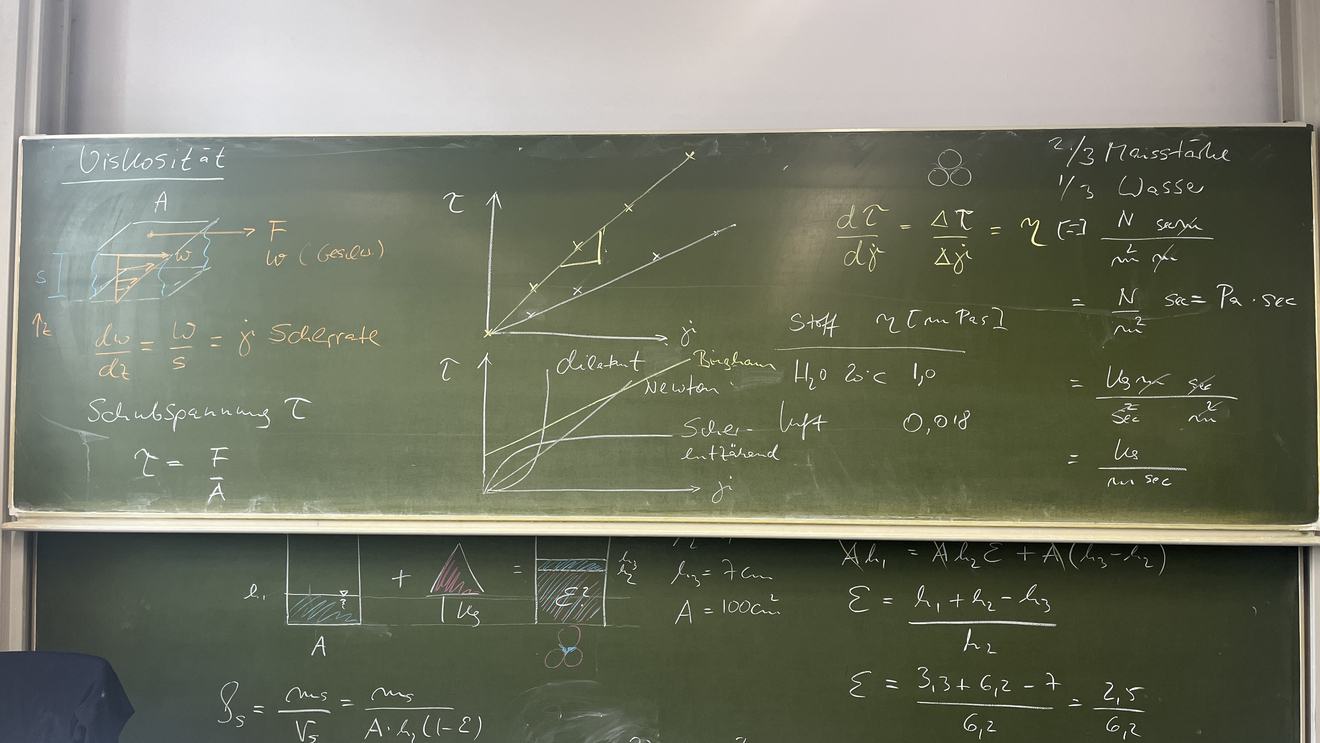 Viskosität
A
F
w (Geschw.)
w
s
↑z
dw/dz = w/s = γ̇ Scherrate
Schubspannung τ
τ = F/A
τ
γ̇
τ
dilatant
Bingham
Newton
Scher-
entzähend
γ̇
2/3 Maisstärke
1/3 Wasser
dτ/dγ̇ = Δτ/Δγ̇ = η [=] N sec m / m² m
= N/m² sec = Pa · sec
= kg m sec / sec² m²
= kg / m sec
Stoff η [m Pas]
H₂O 20°C 1,0
Luft 0,018
h₁
A
+
1 kg
=
ε?
h₃
h₂
h₃ = 7cm
A = 100cm²
A h₁ = A h₂ ε + A (h₃ - h₂)
ε = h₁ + h₂ - h₃ / h₂
ε = 3,3 + 6,2 - 7 / 6,2 = 2,5 / 6,2
ρs = ms / Vs = ms / A · h₂ (1-ε)